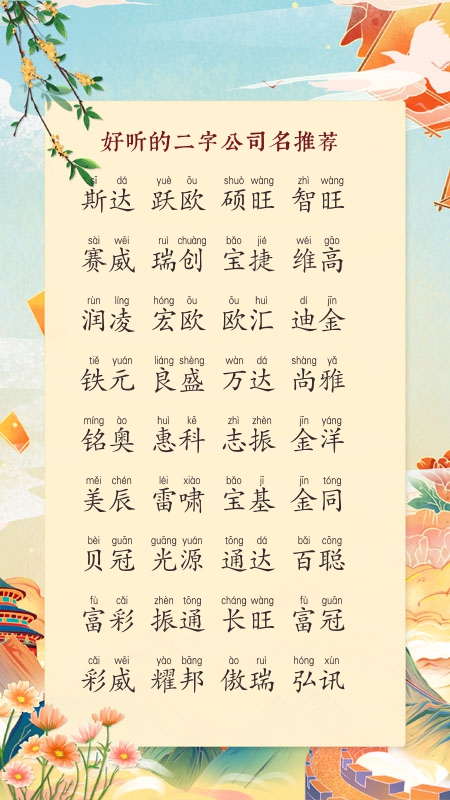 好听的二字公司名推荐
sī dá yuè ōu shuò wàng zhì wàng
斯达 跃欧 硕旺 智旺
sài wēi ruì chuàng bǎo jié wéi gāo
赛威 瑞创 宝捷 维高
rùn líng hóng ōu ōu huì dí jīn
润凌 宏欧 欧汇 迪金
tiě yuán liáng shèng wàn dá shàng yǎ
铁元 良盛 万达 尚雅
míng ào huì kē zhì zhèn jīn yáng
铭奥 惠科 志振 金洋
měi chén léi xiào bǎo jī jīn tóng
美辰 雷啸 宝基 金同
bèi guān guāng yuán tōng dá bǎi cōng
贝冠 光源 通达 百聪
fù cǎi zhèn tōng cháng wàng fù guān
富彩 振通 长旺 富冠
cǎi wēi yào bāng ào ruì hóng xùn
彩威 耀邦 傲瑞 弘讯